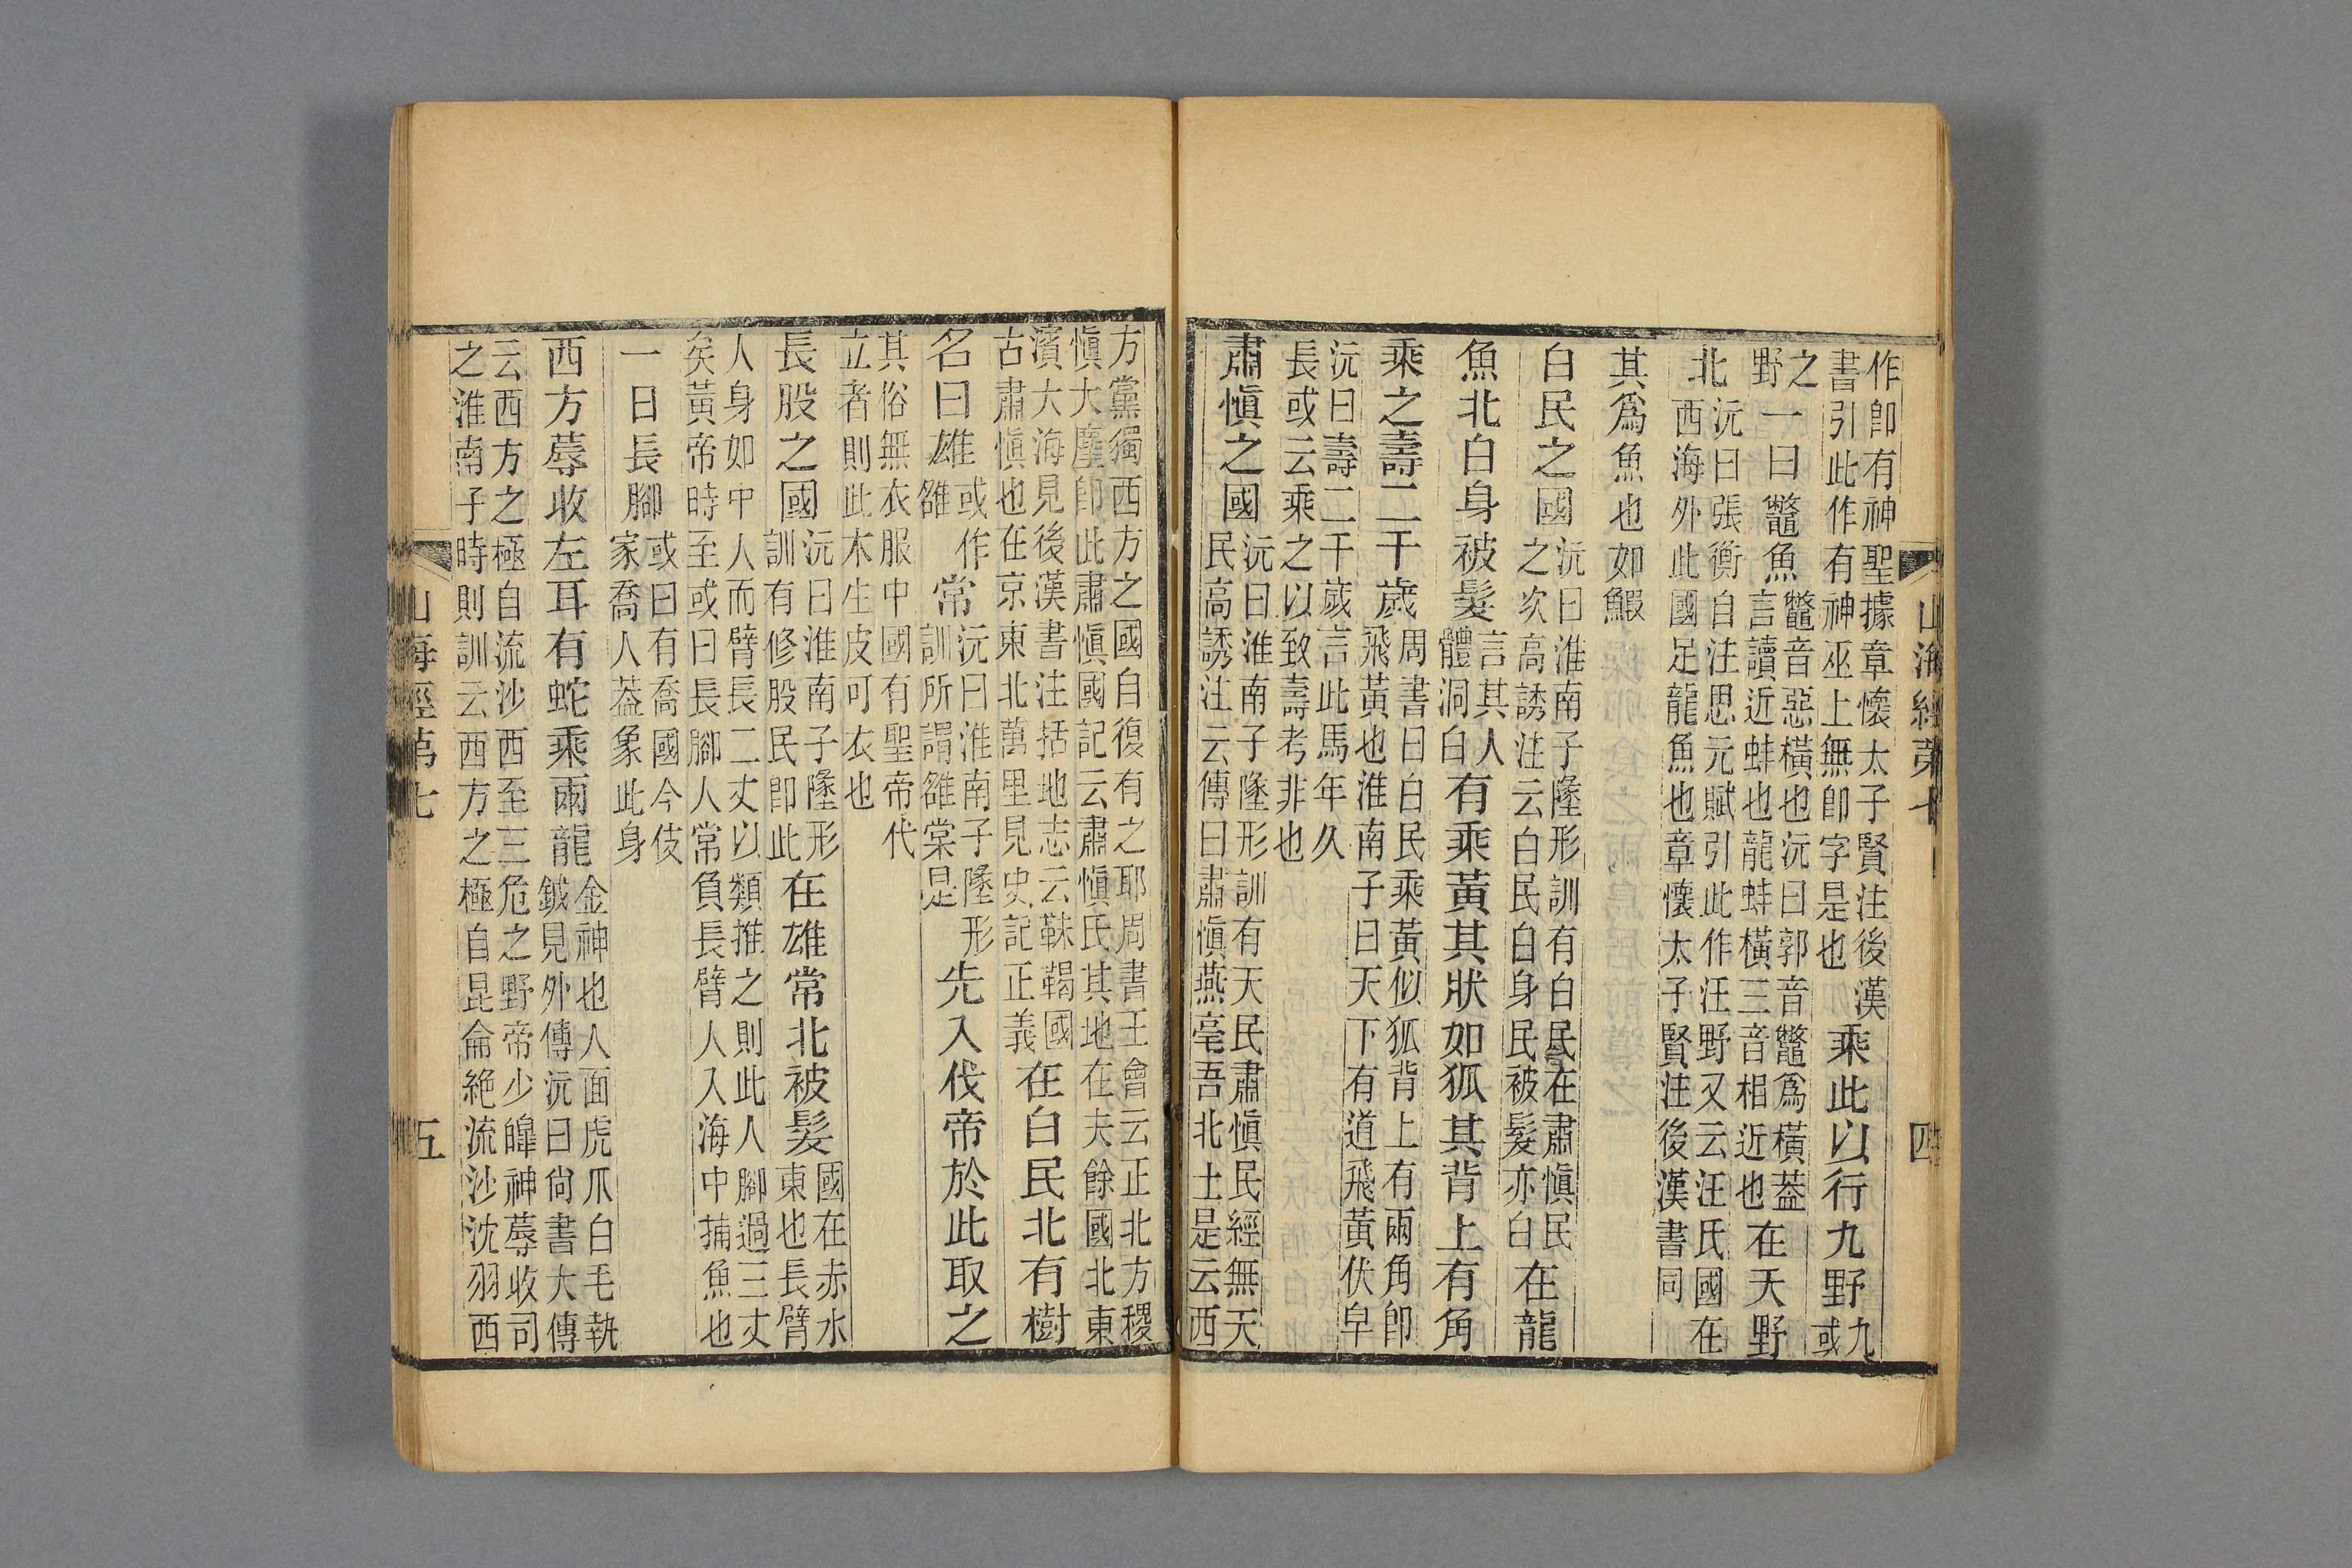 山海經第七
四
作卽有神聖據章懷太子賢注後漢
書引此作有神巫上無卽字是也
乘此以行九野九
或
之
野一曰鼈魚鼈音惡橫也沅曰郭音鼈爲橫葢
言讀近蚌也龍蚌橫三音相近也
在天野
北沅曰張衡自注思元賦引此作汪野又云汪氏國在
西海外此國足龍魚也章懷太子賢注後漢書同
其爲魚也如鰕
白民之國沅曰淮南子墬形訓有白民在肅愼民
之次高誘注云白民白身民被髮亦白
在龍
魚北白身被髮言其人
體洞白
有乘黃其狀如狐其背上有角
乘之壽二千歲周書曰白民乘黃似狐背上有兩角卽
飛黃也淮南子曰天下有道飛黃伏皁
沅曰壽二千歲言此馬年久
長或云乘之以致壽考非也
肅愼之國沅曰淮南子墬形訓有天民肅愼民經無天
民高誘注云傳曰肅愼燕亳吾北土是云西
方黨獨西方之國自復有之耶周書王會云正北方稷
愼大麈卽此肅愼國記云肅愼氏其地在夫餘國北東
濱大海見後漢書注括地志云靺鞨國
古肅愼也在京東北萬里見史記正義
在白民北有樹
名曰雄或作
雒
常沅曰淮南子墬形
訓所謂雒棠是
先入伐帝於此取之
其俗無衣服中國有聖帝代
立者則此木生皮可衣也
長股之國沅曰淮南子墬形
訓有修股民卽此
在雄常北被髮國在赤水
東也長臂
人身如中人而臂長二丈以類推之則此人腳過三丈
矣黃帝時至或曰長腳人常負長臂人入海中捕魚也
一曰長腳或曰有喬國今伎
家喬人葢象此身
西方蓐收左耳有蛇乘兩龍金神也人面虎爪白毛執
鉞見外傳沅曰尙書大傳
云西方之極自流沙西至三危之野帝少皥神蓐收司
之淮南子時則訓云西方之極自昆侖絶流沙沈羽西
山海經第七
五